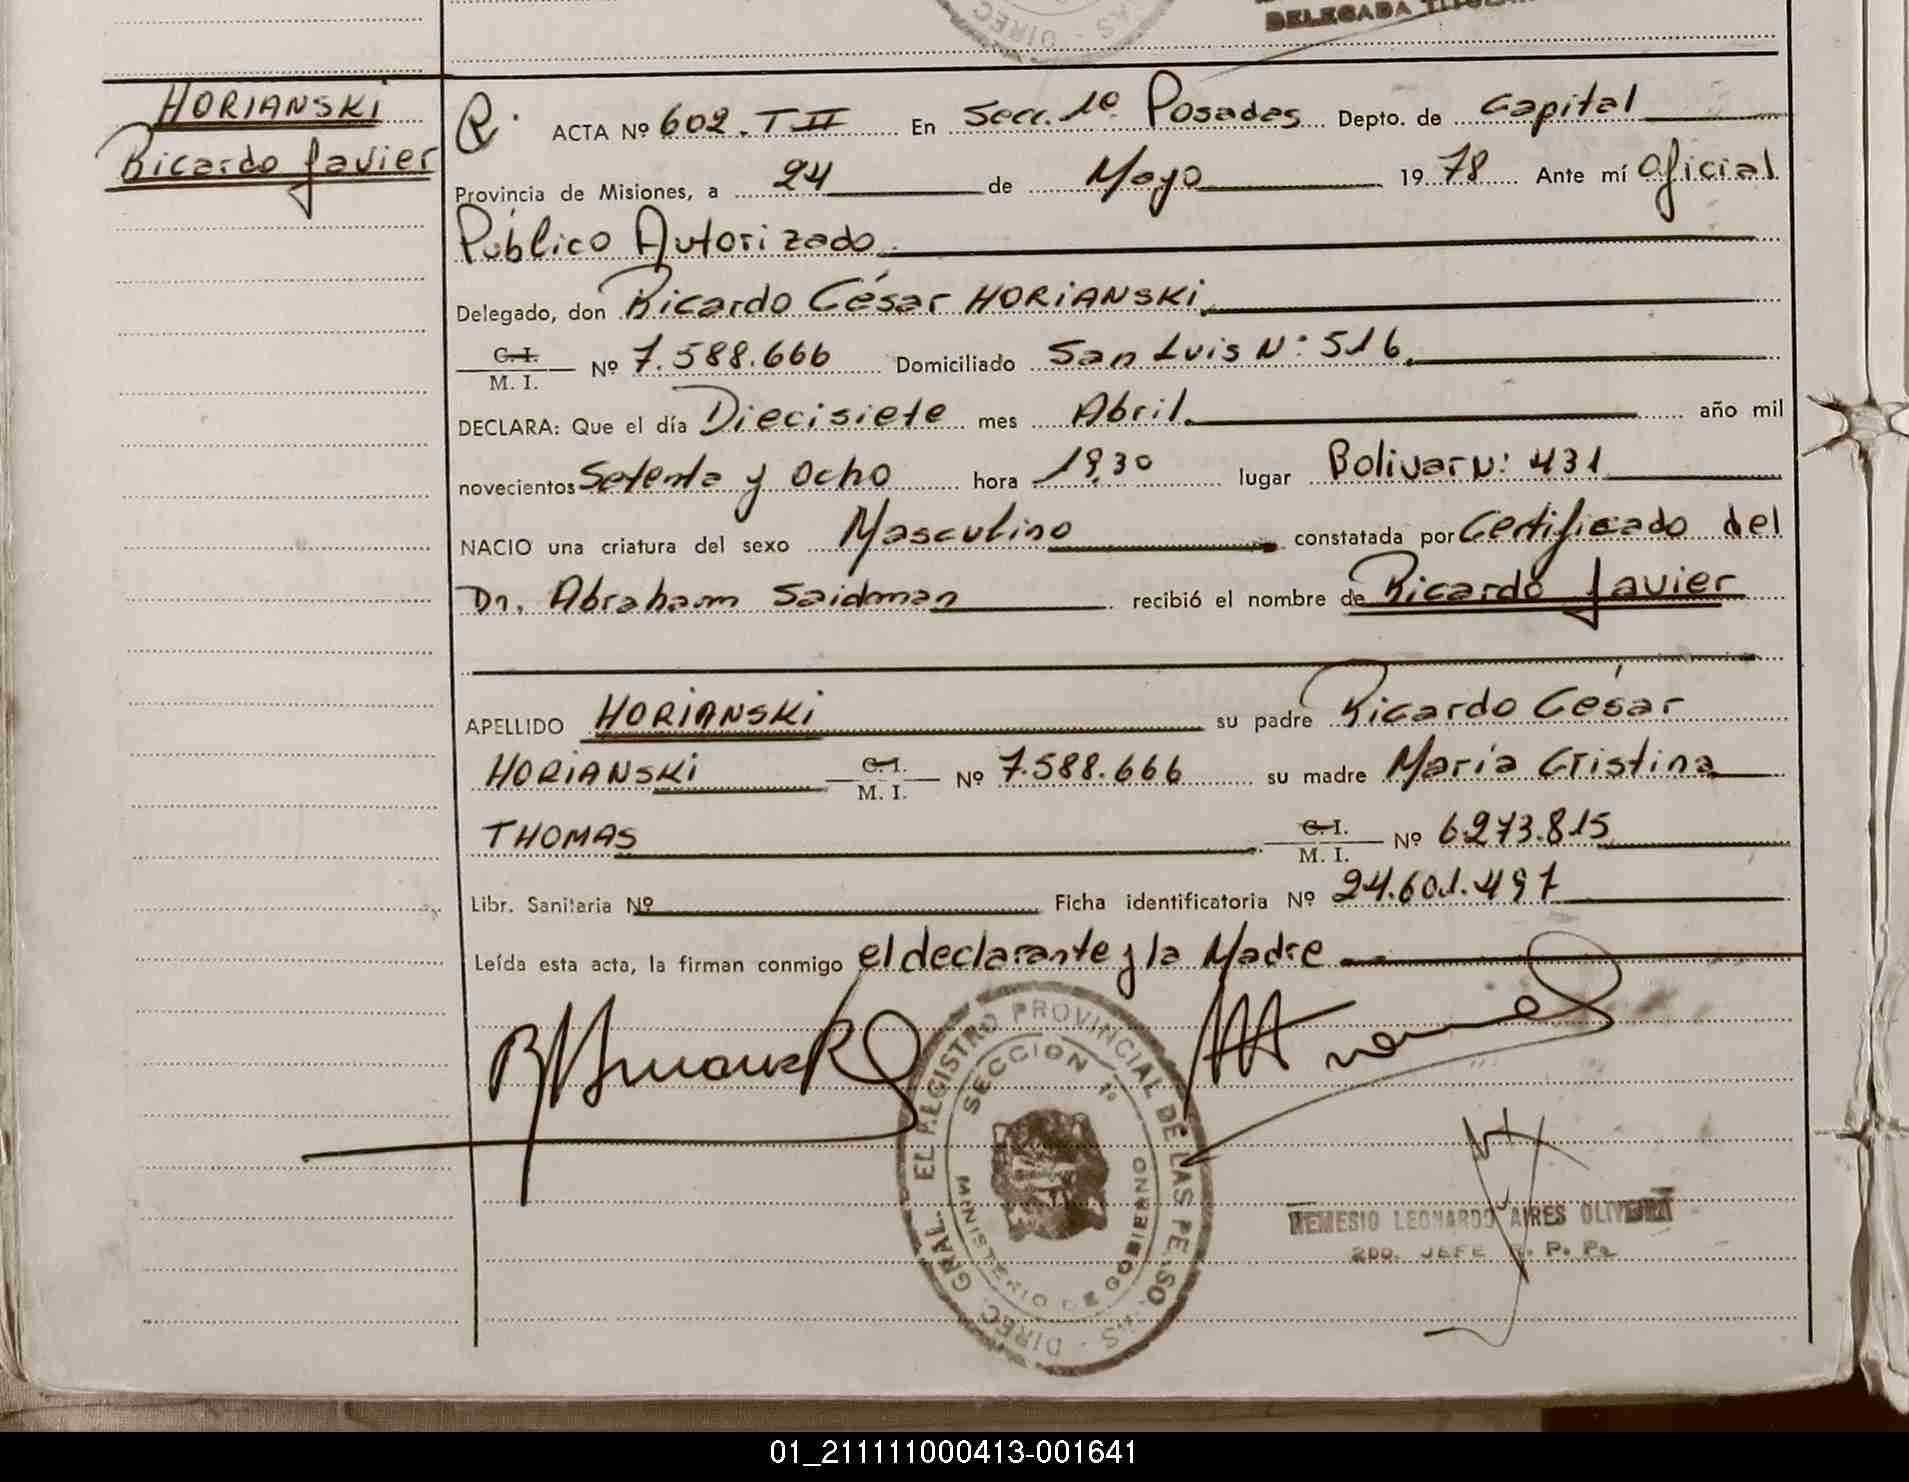 DELEGADA
HORIANSKI
Ricardo Javier
R. ACTA Nº 602. T II En Secc. 1º. Posadas Depto. de Capital
Provincia de Misiones, a 24 de Mayo 1978 Ante mí Oficial
Público Autorizado
Delegado, don Ricardo César HORIANSKI
C. I. / M. I. Nº 7.588.666 Domiciliado San Luis N: 516
DECLARA: Que el día Diecisiete mes Abril año mil
novecientos Setenta y Ocho hora 19,30 lugar Bolivar N: 431
NACIO una criatura del sexo Masculino constatada por Certificado del
Dr. Abraham Saidman recibió el nombre de Ricardo Javier
APELLIDO HORIANSKI su padre Ricardo César
HORIANSKI C. I. / M. I. Nº 7.588.666 su madre María Cristina
THOMAS C. I. / M. I. Nº 6.273.815
Libr. Sanitaria Nº Ficha identificatoria Nº 24.601.497
Leída esta acta, la firman conmigo el declarante y la Madre
DIREC. GRAL. EL REGISTRO PROVINCIAL DE LAS PERSO
SECCION 1º
MINISTERIO DE GOBIERNO
NEMESIO LEONARDO AIRES OLIVEIRA
2DO. JEFE R. P. P.
01_211111000413-001641